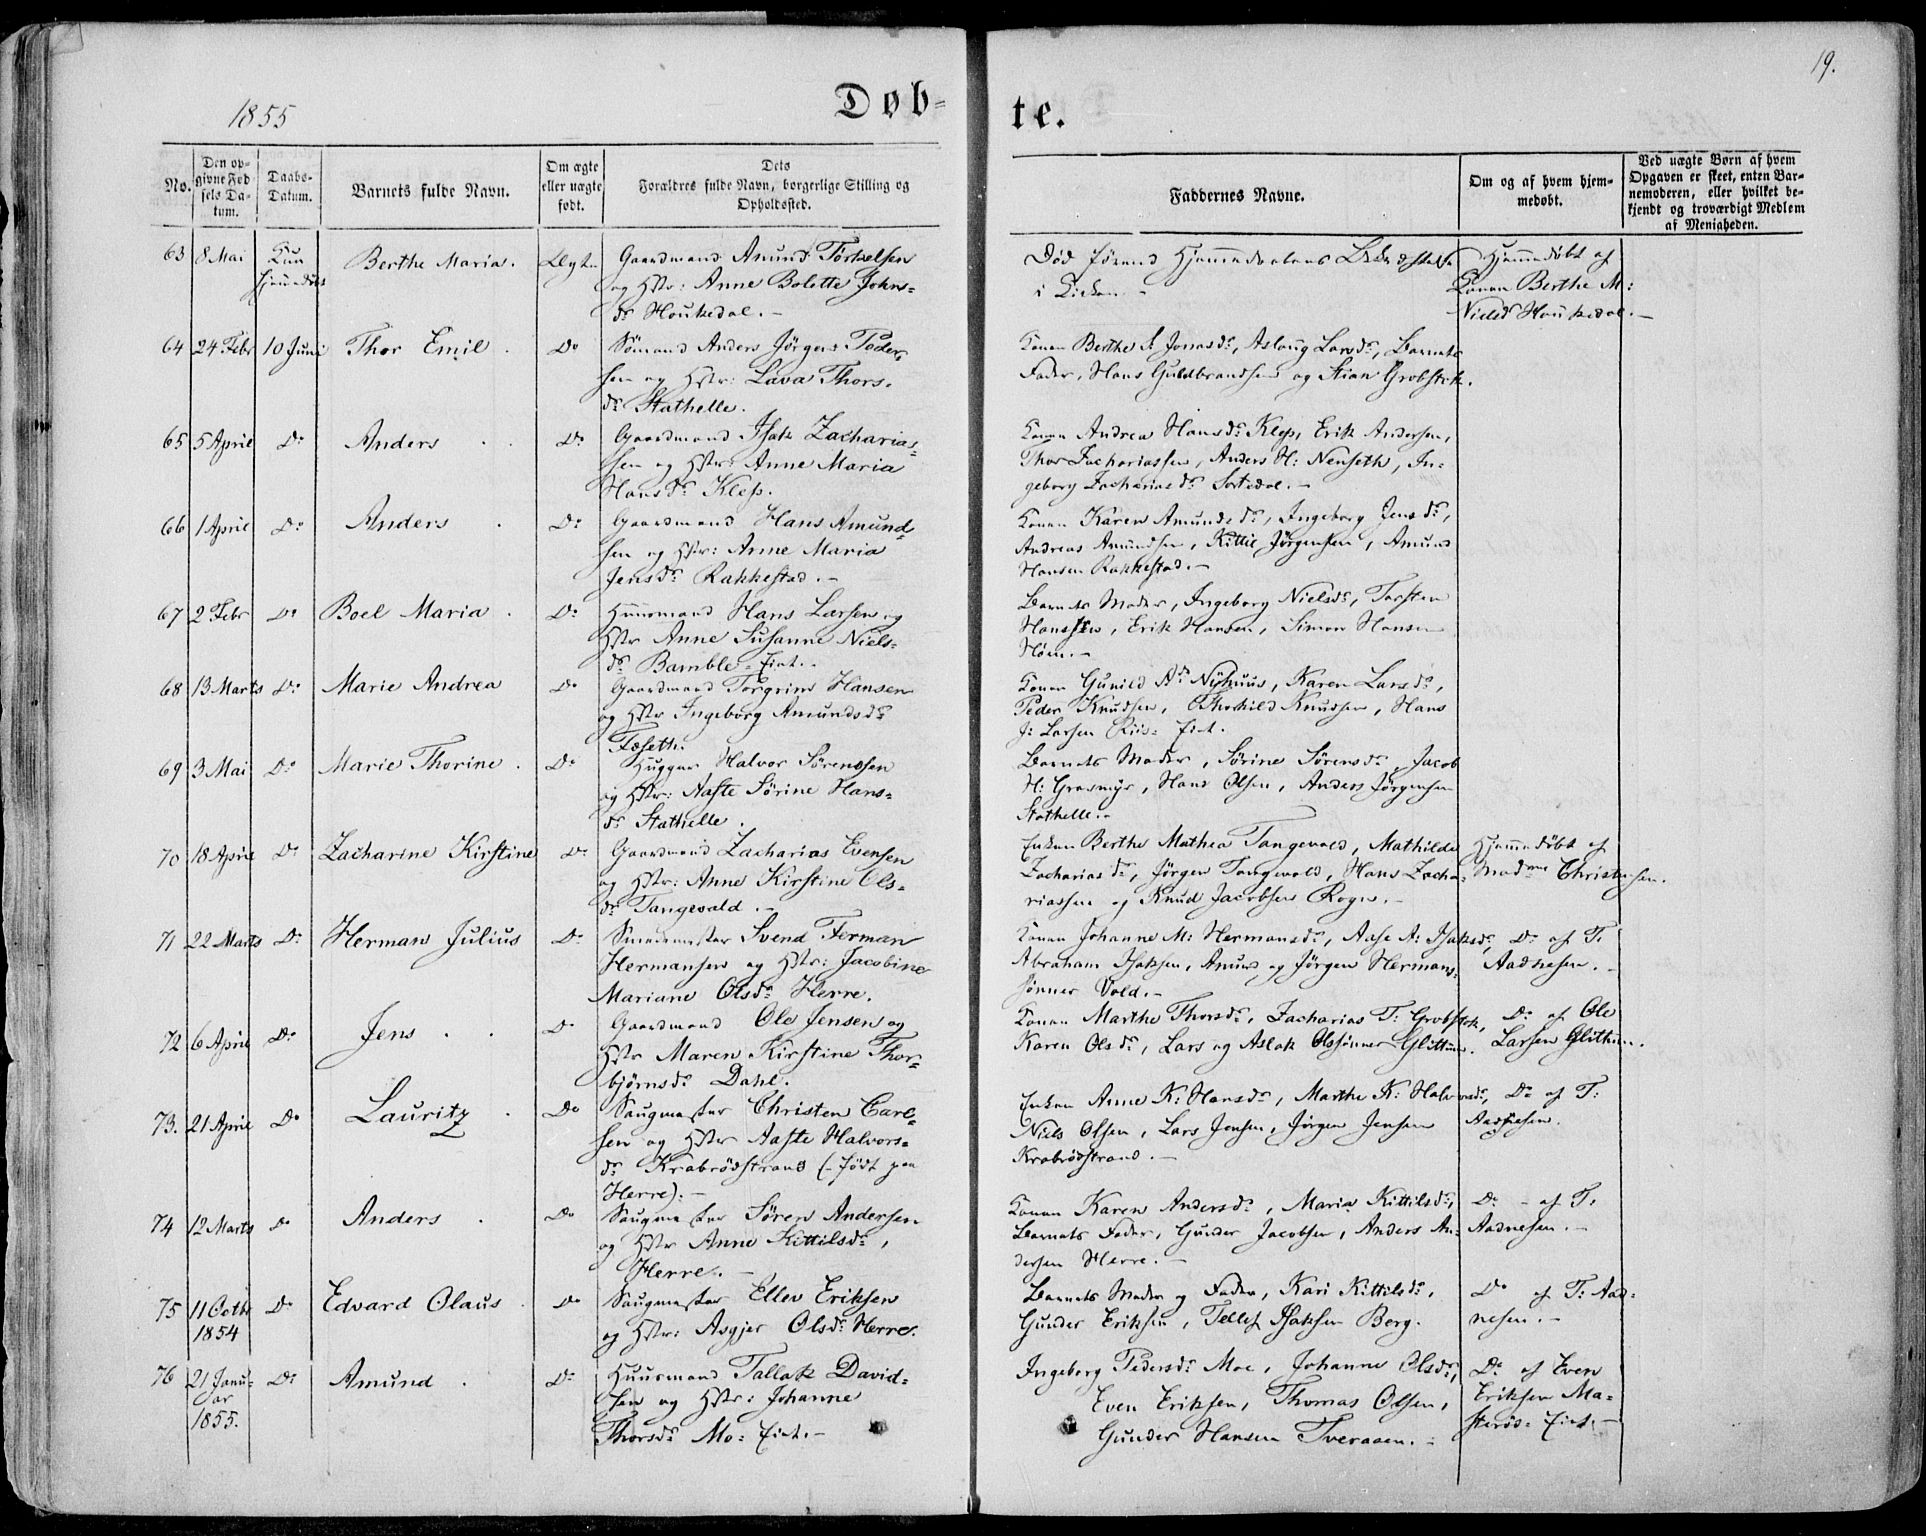 19.
1855
Døb-
te.
No.
Den op-
givne Fød
sels Da-
tum.
Daabs-
Datum.
Barnets fulde Navn.
Om ægte
eller uægte
født.
Dets
Forældres fulde Navn, borgerlige Stilling og
Opholdssted.
Faddernes Navne.
Om og af hvem hjem-
medøbt.
Ved uægte Børn af hvem
Opgaven er skeet, enten Bar-
nemoderen, eller hvilket be-
kjendt og troværdigt Medlem
af Menigheden.
63 8 Mai Kun
hjemmedøbt
Berthe Maria. Ægte
Gaardmand Amund Torkelsen
og Hstr: Anne Bolette Johns-
dr Houkedal.-
Død førend Hjemmedaabens
i Kirken -
Hjemmedøbt af
Konen Berthe M:
Nielsd Houkedal.-
64 24 Febr 10 Juni Thor Emil . Do
Sømand Anders Jörgens Peder-
sen og Hstr: Lava Thors-
dr Stathelle.
Konen Berthe S. Jonasdr, Aslaug Larsdr, Barnets
Fader, Hans Guldbrandsen og Stian Grobstok.
65 5 April Do Anders . . Do
Gaardmand Isak Zacharias-
sen og Hstr: Anne Maria
Hansdr Klep.
Konen Andrea Hansdr Klep, Erik Andersen,
Thor Zachariassen, Anders H: Nenseth, In-
geborg Zachariasdr Sortedal.-
66 1 April Do Anders . Do
Gaardmand Hans Amund-
sen og Hstr: Anne Maria
Jensdr Rakkestad.-
Konen Karen Amundsdr, Ingeborg Jensdr,
Andreas Amundsen, Kittil Jörgensen, Amund
Hansen Rakkestad.-
67 2 Febr Do Boel Maria . Do
Huusmand Hans Larsen og
Hstr Anne Susanne Niels-
dr Bamble-Eiet.-
Barnets Moder, Ingeborg Nielsdr, Torsten
Hanssen, Erik Hansen, Simon Hansen
Höen.-
68 13 Marts Do Marie Andrea Do
Gaardmand Torgrim Hansen
og Hstr Ingeborg Amundsdr
Foseth.
Konen Gunild Adr Nyhuus, Karen Larsdr,
Peder Knudsen, Thorkild Knudsen, Hans
J: Larsen Riis-Eiet.
69 3 Mai Do Marie Thorine . Do
Hugger Halvor Sörensen
og Hstr: Aaste Sörine Hans-
dr Stathelle.
Barnets Moder, Sörine Sörensdr, Jacob
H: Grasmyr, Hans Olsen, Anders Jörgensen
Stathelle.-
70 18 April Do Zacharine Kirstine Do
Gaardmand Zacharias Evensen
og Hstr: Anne Kirstine Ols-
dr Tangevald.-
Enken Berthe Mathea Tangevald, Mathilde
Zachariasdr, Jörgen Tangvald, Hans Zacha-
riassen og Knud Jacobsen Rogn.-
Hjemmedøbt af
Madme Christensen.
71 22 Marts Do Herman Julius Do
Smedmester Svend Ferman
Hermansen og Hstr: Jacobine
Mariane Olsdr Herre.
Konen Johanne M: Hermansdr, Aase A: Isaksdr,
Abraham Isaksen, Amund og Jörgen Hermans-
sönner Vold.-
Do af T:
Aadnesen.-
72 6 April Do Jens . . Do
Gaardmand Ole Jensen og
Hstr Maren Kirstine Thor-
björnsdr Dahl.
Konen Marthe Thorsdr, Zacharias T: Grobstok,
Karen Olsdr, Lars og Aslak Olssönner Glittum.
Do af Ole
Larsen Glittum.
73. 21 April Do Lauritz . Do
Saugmester Christen Carl-
sen og Hstr Aaste Halvors-
dr Krabrödstrand (-födt paa
Herre).-
Enken Anne K: Hansdr, Marthe K: Halvorsdr,
Niels Olsen, Lars Jensen, Jörgen Jensen
Krabrödstrand.-
Do af T:
Aadnesen.
74 12 Marts Do Anders . Do
Saugmester Sören Andersen
og Hstr Anne Kittilsdr,
Herre.-
Konen Karen Andersdr, Maria Kittilsdr,
Barnets Fader, Gunder Jacobsen, Anders An-
dersen Herre.-
Do - af T:
Aadnesen.-
75 11 Octbr
1854 Do Edvard Olaus . Do
Saugmester Ellev Eriksen
og Hstr: Asgjer Olsdr Herre.
Barnets Moder og Fader, Kari Kittilsdr,
Gunder Eriksen, Tellef Isaksen Berg.
Do af T: Aad-
nesen.-
76 21 Janu-
ar
1855. Do Amund . Do
Huusmand Tallak David-
sen og Hstr: Johanne
Thorsdr Mo-Eiet.-
Ingeborg Pedersdr Moe, Johanne Olsdr,
Even Eriksen, Thomas Olsen,
Gunder Hansen Tveraaen.-
Do af Even
Eriksen Ma-
steröd-Eiet.-